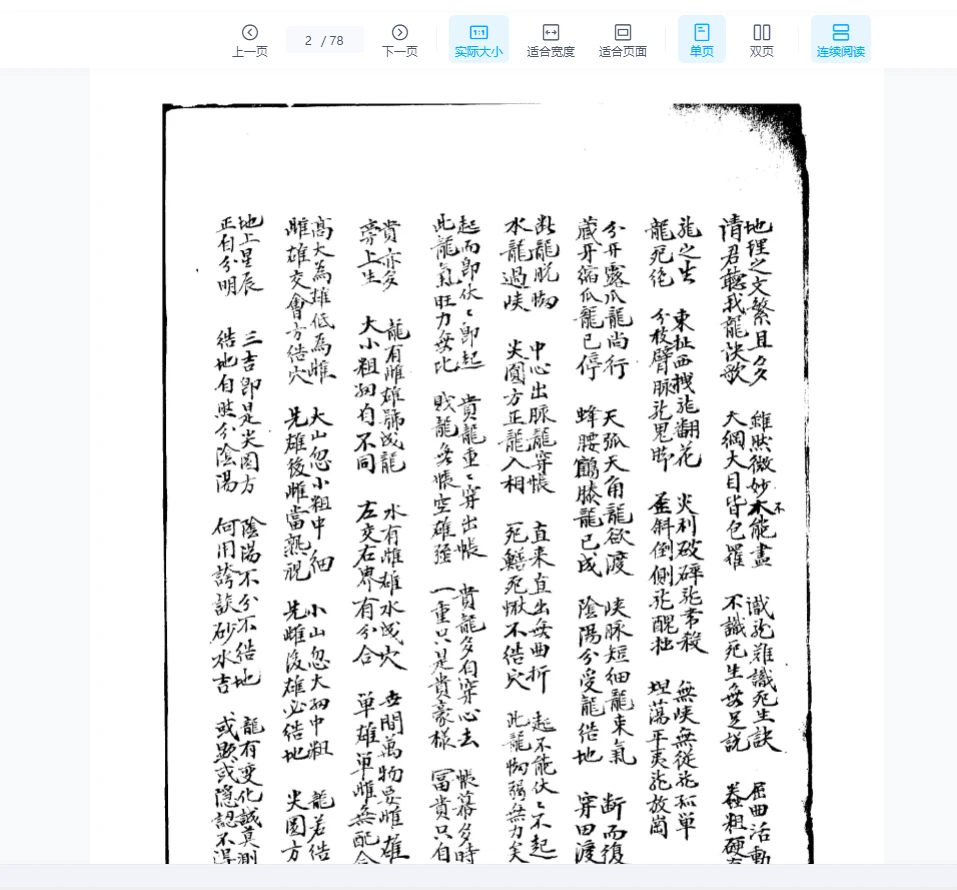 上一页
2 / 78
下一页
实际大小
适合宽度
适合页面
单页
双页
连续阅读
地理之文繁且多 雖然微妙不能盡 識龍難識死生訣 屈曲活動
請君聽我龍决歌 大綱大目皆包羅 不識死生無足説 蠢粗硬
龍之生 東扯西拽龍翻花 尖利破碎龍帶殺 無峽無從龍孤單
龍死絕 分枝臂脉龍鬼脚 歪斜倒側龍醜拙 坦蕩平夷龍放崗
分牙露爪龍尚行 天弧天角龍欲渡 峽脉短細龍束氣 断而復
藏牙縮爪龍已停 蜂腰鶴膝龍已成 陰陽分受龍结地 穿田渡
龍脱 中心出脉龍穿帳 直来直出無曲折 起不能伏〻不起
水龍過峽 尖圓方正龍入相 死鱔死鰍不结穴 此龍弱無力矣
起而即伏〻即起 貴龍重〻穿出帳 貴龍多自穿心去 帳幕多時
此龍氣旺力無比 賤龍無帳空雄强 一重只是貴豪樣 富貴只自
貴亦多 龍有雌雄號成龍 水有雌雄水成穴 世間萬物要雌雄
旁上生 大小粗自不同 左交右界有分合 單雄單雌無配合
高大為雄低為雌 大山忽小粗中細 小山忽大中粗 龍若结
雌雄交會方结穴 先雄後雌當熟視 先雌後雄必结地 尖圓方
地上星辰 三吉即是尖圓方 陰陽不分不结地 龍有变化誠莫測
正自分明 结地自然分陰陽 何用誇談砂水吉 或顕或隐認不得